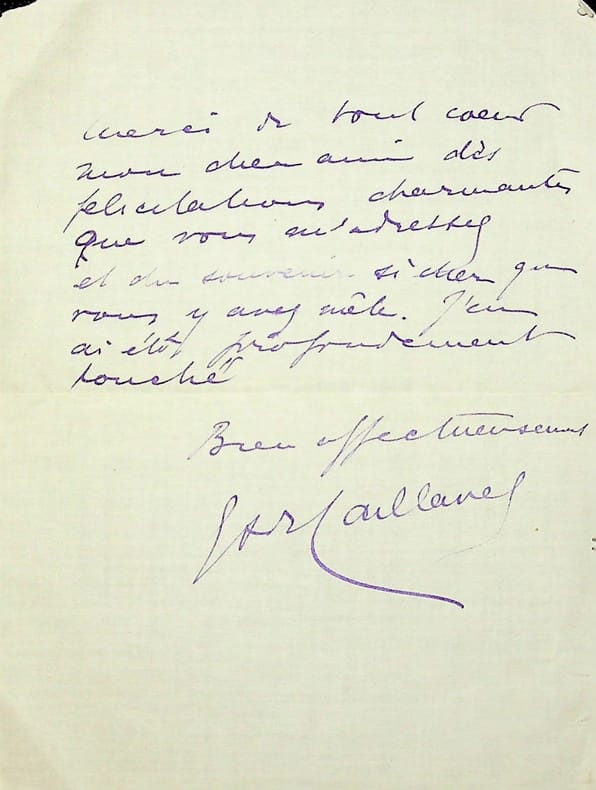 Merci de tout coeur
mon cher ami dès
félicitations charmantes
que vous m'adressez
et du souvenir si cher que
vous y avez mêlé. J'en
ai été profondément
touché
Bien affectueusement
GA de Caillavet